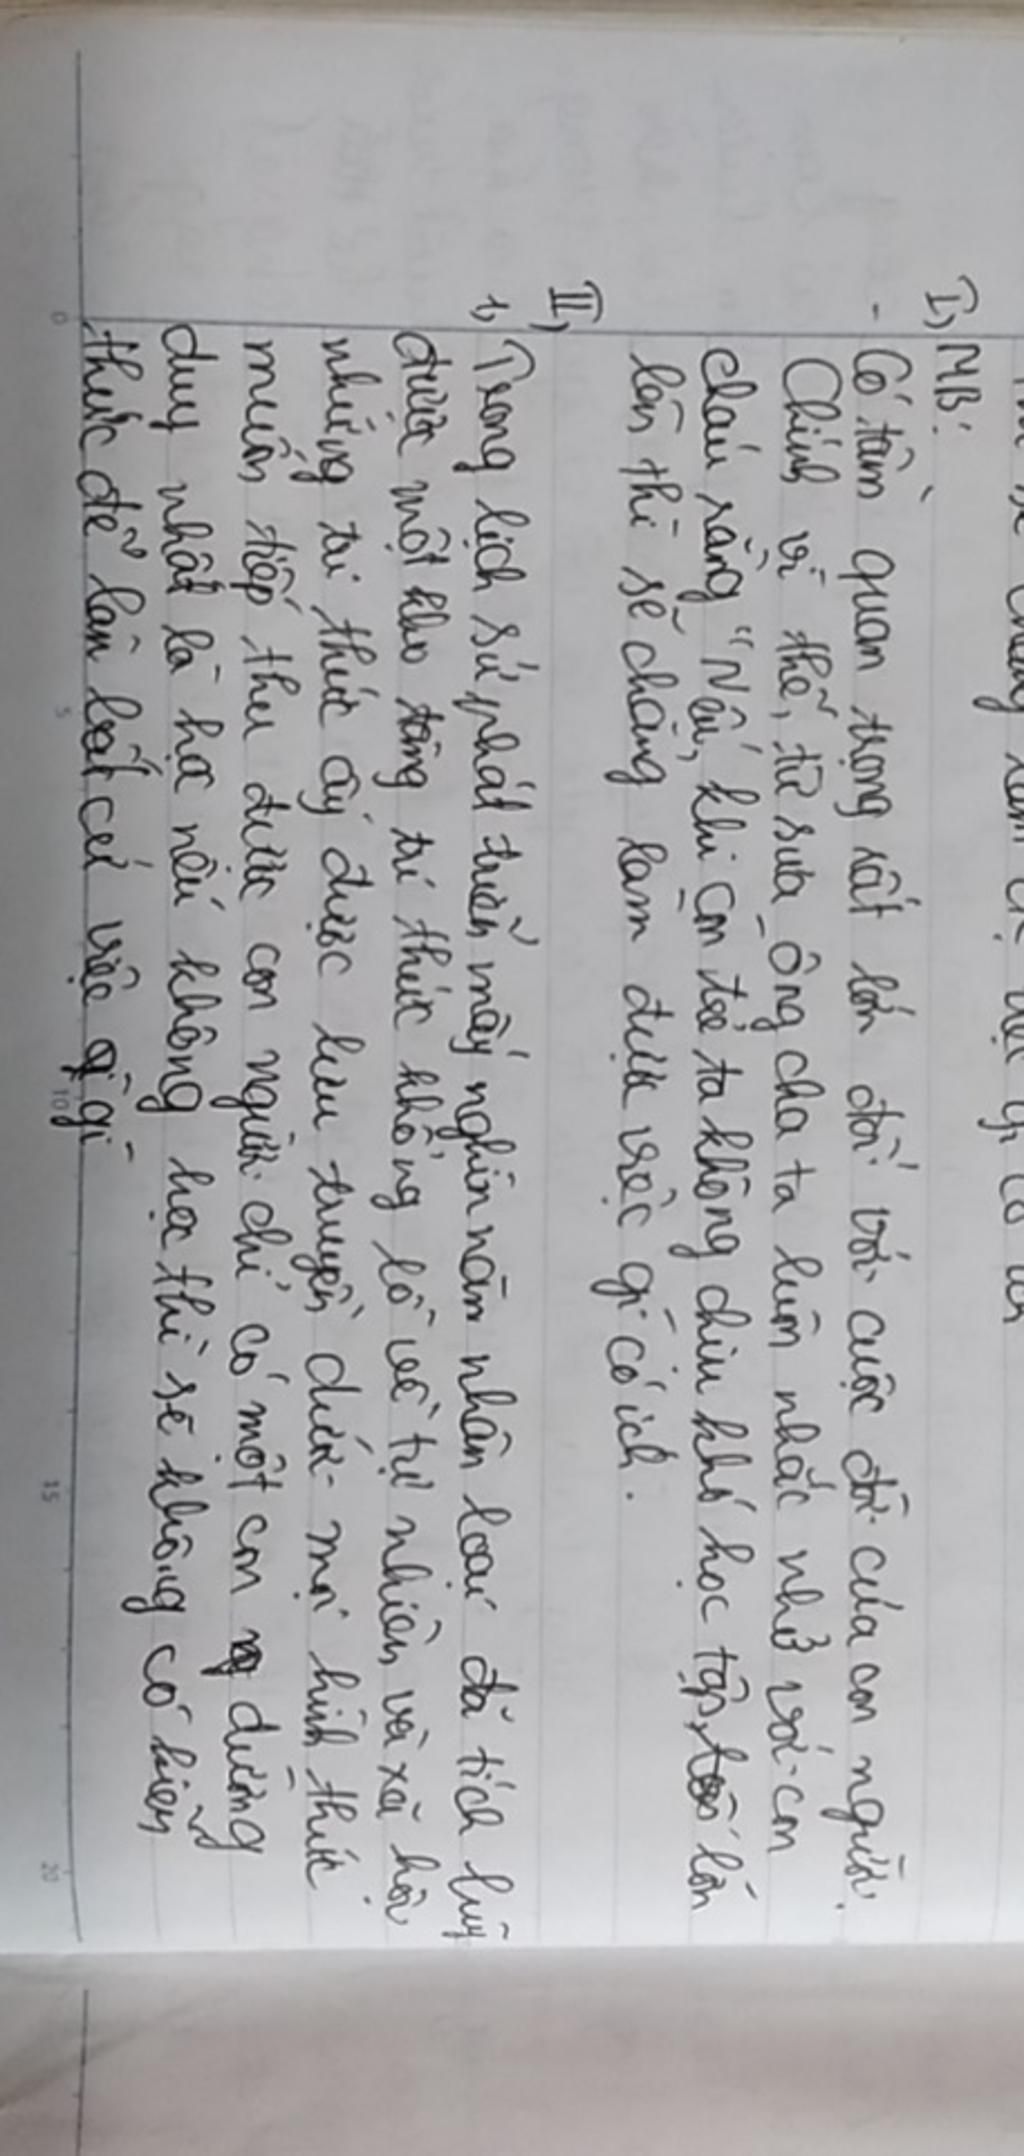 I, MB:
- Có tầm quan trọng rất lớn đối với cuộc đời của con người.
Chính vì thế, từ xưa ông cha ta luôn nhắc nhở với con
cháu rằng "Nếu khi còn trẻ ta không chịu khó học tập, lớn
lên thì sẽ chẳng làm được việc gì có ích.
II,
1, Trong lịch sử phát triển mấy nghìn năm nhân loại đã tích luỹ
được một kho tàng tri thức khổng lồ về tự nhiên và xã hội
những tri thức ấy được lưu truyền dưới mọi hình thức
muốn tiếp thu được con người chỉ có một con đường
duy nhất là học nếu không học thì sẽ không có kiến
thức để làm bất cứ việc gì